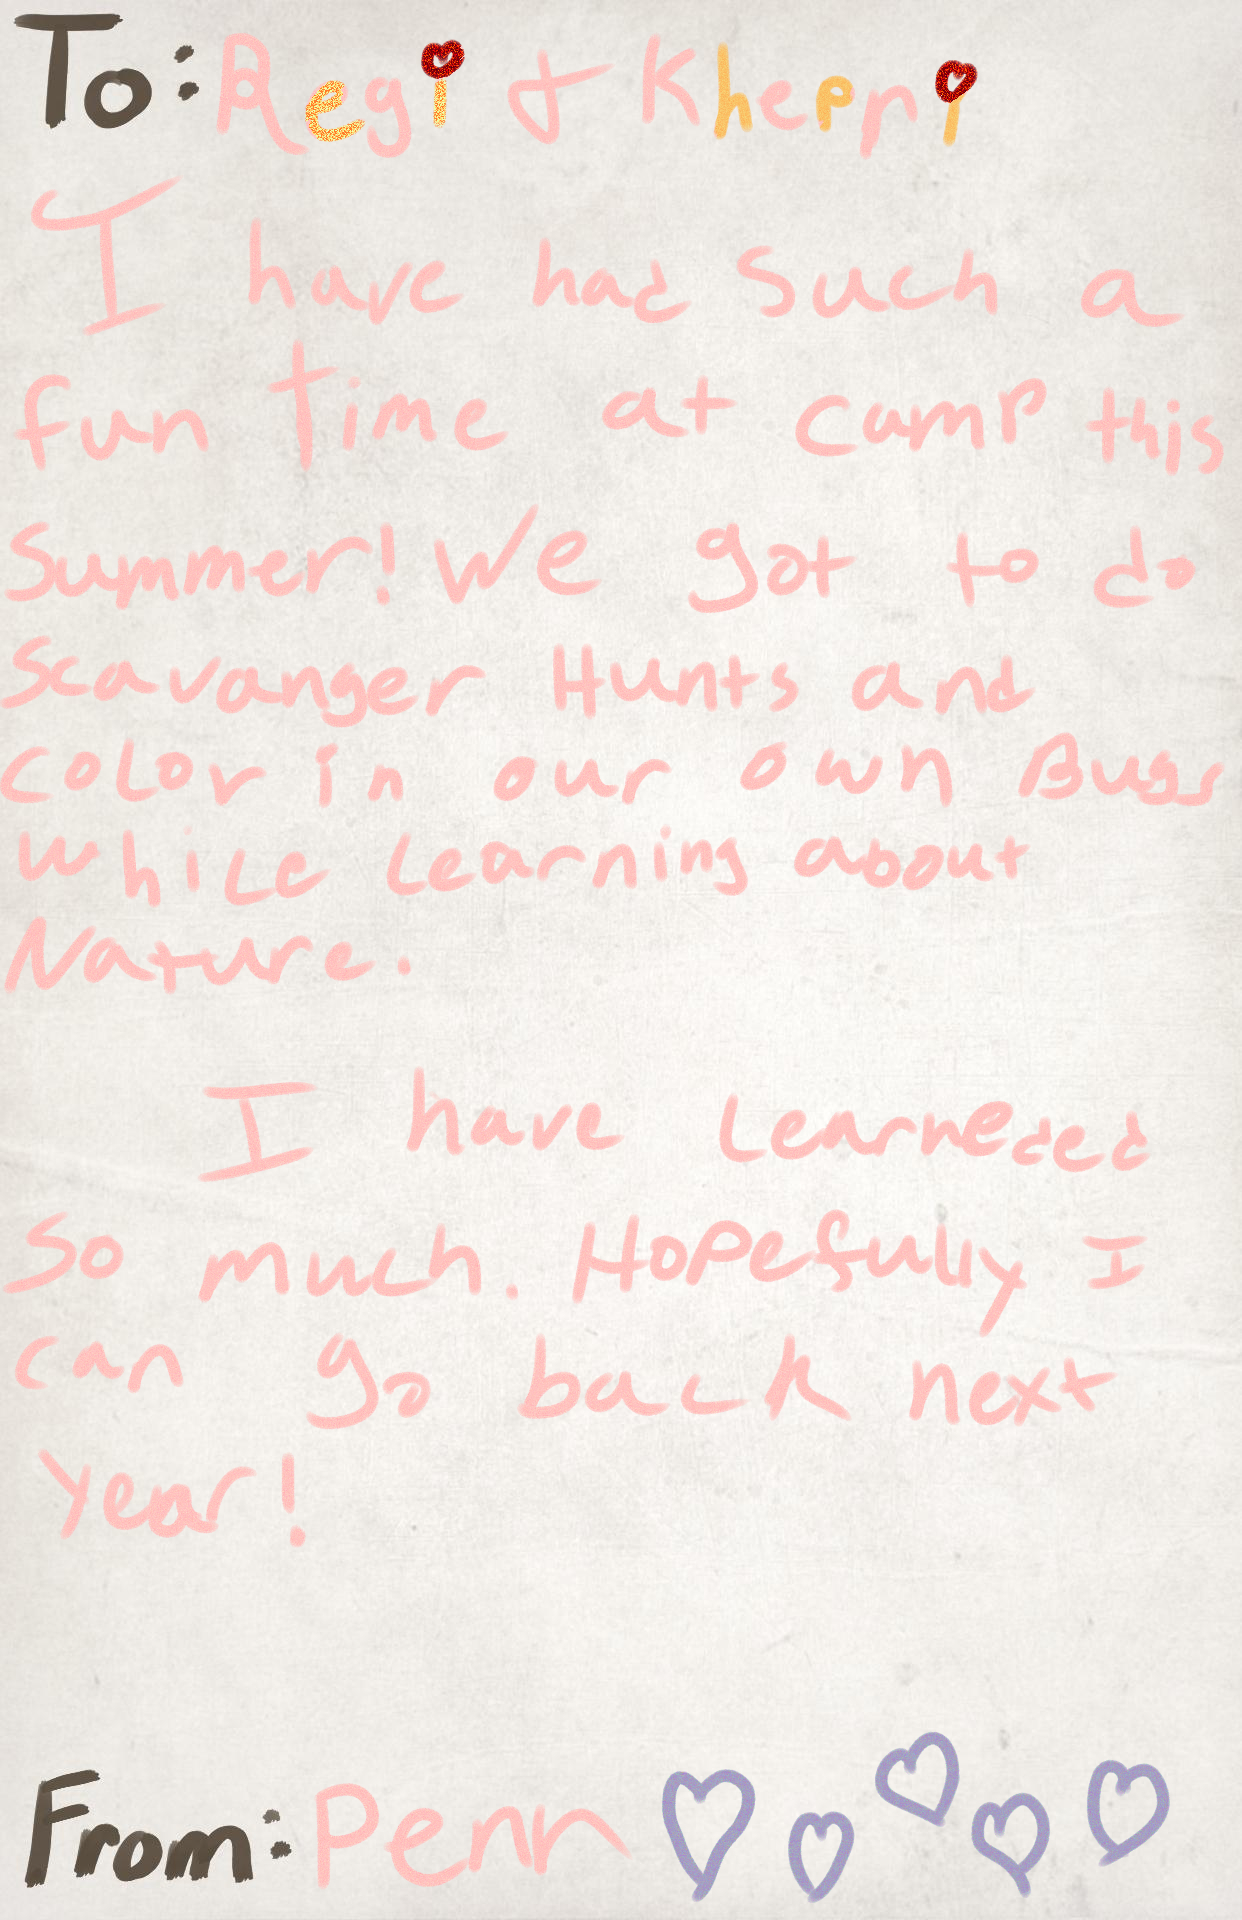 To: Regi & Khepri
I have had such a
fun time at camp this
Summer! We got to do
Scavanger Hunts and
color in our own Bugs
while learning about
Nature.
I have learneded
so much. Hopefully I
can go back next
year!
From: Penn